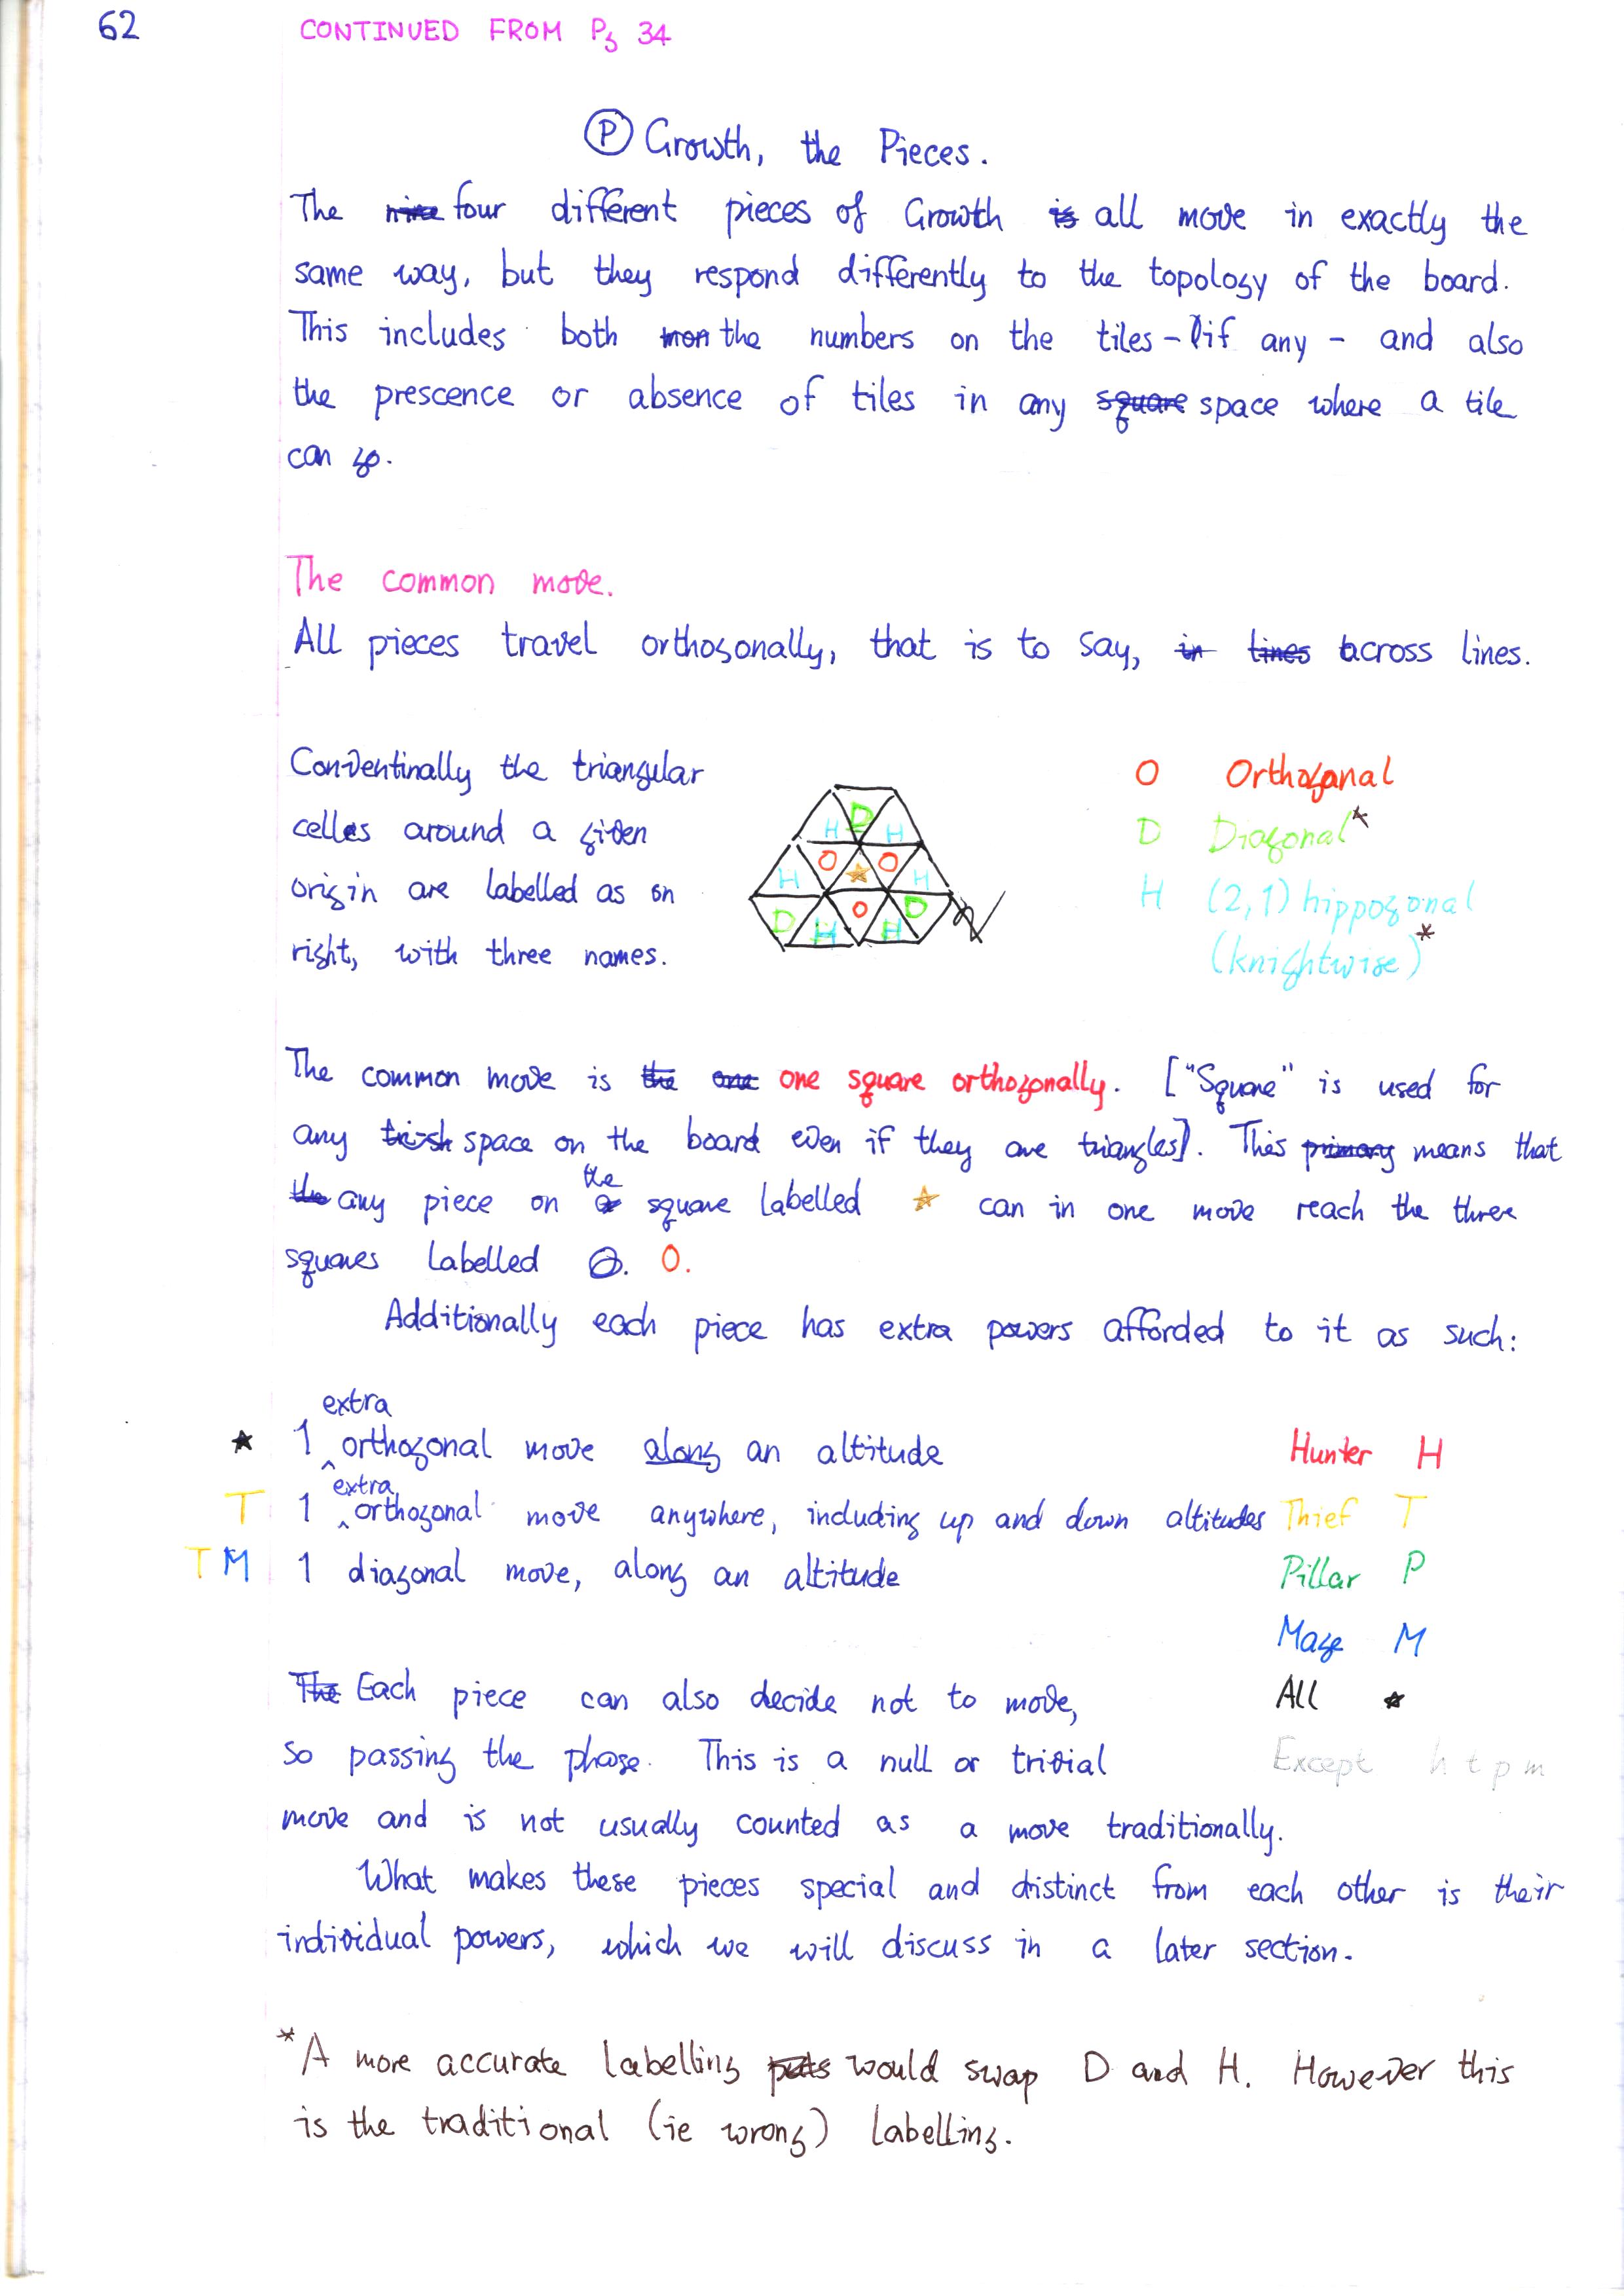 62
CONTINUED FROM Pg 34
Ⓟ Growth, the Pieces.
The nine four different pieces of Growth is all move in exactly the
same way, but they respond differently to the topology of the board.
This includes both the numbers on the tiles - if any - and also
the prescence or absence of tiles in any square space where a tile
can go.
The common move.
All pieces travel orthogonally, that is to say, in lines across lines.
Conventinally the triangular
celles around a given
origin are labelled as on
right, with three names.
D
H H
O O
H ★ H
D O D
H H
O Orthogonal
D Diagonal*
H (2,1) hippogonal
(knightwise)*
The common move is the one one square orthogonally. ["Square" is used for
any space on the board even if they are triangles]. This primary means that
the any piece on a the square labelled ★ can in one move reach the three
squares labelled O. O.
Additionally each piece has extra powers afforded to it as such:
★ 1 extra orthogonal move along an altitude
T 1 extra orthogonal move anywhere, including up and down altitudes
T M 1 diagonal move, along an altitude
Hunter H
Thief T
Pillar P
Mage M
All ★
Except h t p m
The Each piece can also decide not to move,
so passing the phase. This is a null or trivial
move and is not usually counted as a move traditionally.
What makes these pieces special and distinct from each other is their
individual powers, which we will discuss in a later section.
*A more accurate labelling puts would swap D and H. However this
is the traditional (ie wrong) labelling.